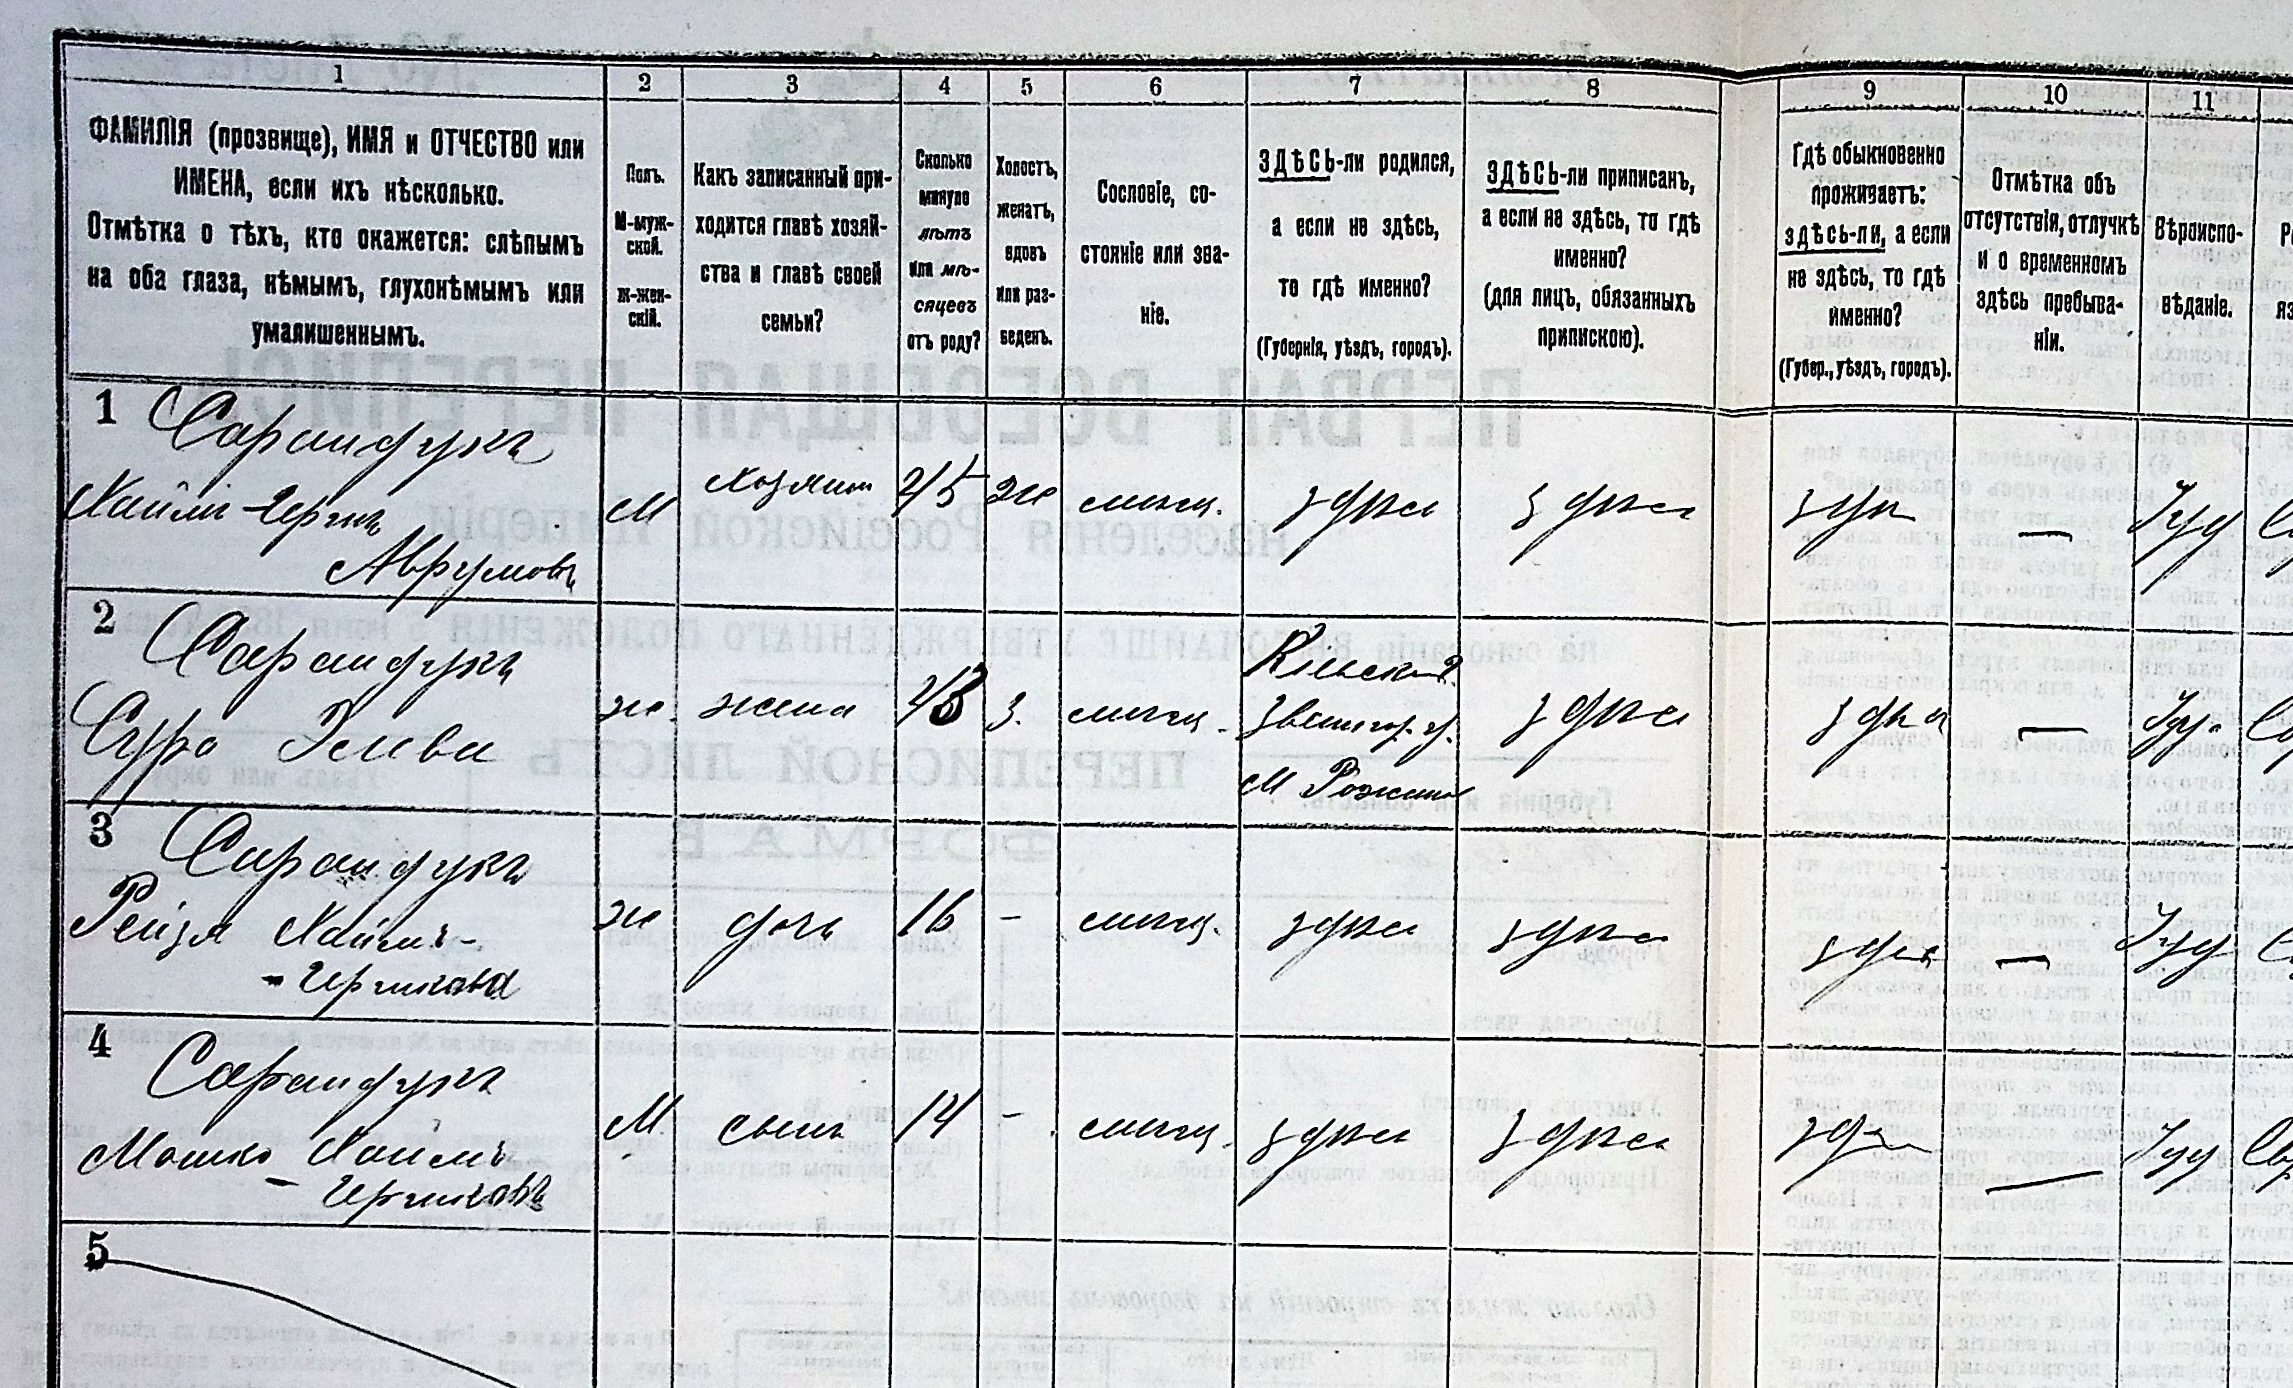 1
2
3
4
5
6
7
8
9
10
11
ФАМИЛІЯ (прозвище), ИМЯ и ОТЧЕСТВО или
ИМЕНА, если ихъ нѣсколько.
Отмѣтка о тѣхъ, кто окажется: слѣпымъ
на оба глаза, нѣмымъ, глухонѣмымъ или
умалишеннымъ.
Полъ.
М-муж-
ской.
ж-жен-
скій.
Какъ записанный при-
ходится главѣ хозяй-
ства и главѣ своей
семьи?
Сколько
минуло
лѣтъ
или мѣ-
сяцевъ
отъ роду?
Холостъ,
женатъ,
вдовъ
или раз-
веденъ.
Сословіе, со-
стояніе или зва-
ніе.
ЗДѢСЬ-ли родился,
а если не здѣсь,
то гдѣ именно?
(Губернія, уѣздъ, городъ).
ЗДѢСЬ-ли приписанъ,
а если не здѣсь, то гдѣ
именно?
(для лицъ, обязанныхъ
припискою).
Гдѣ обыкновенно
проживаетъ:
здѣсь-ли, а если
не здѣсь, то гдѣ
именно?
(Губер., уѣздъ, городъ).
Отмѣтка объ
отсутствіи, отлучкѣ
и о временномъ
здѣсь пребыва-
ніи.
Вѣроиспо-
вѣданіе.
1 Сарандукъ
Хаимъ-Гершк
Аврумовъ
М
хозяин
45
ж
мѣщ.
здѣсь
здѣсь
здѣс
—
Іуд
2 Сарандукъ
Сура Элива
ж.
жена
43
з.
мѣщ.
Кіевской
Звенигор. у.
м
здѣсь
здѣсь
—
Іуд.
3 Сарандукъ
Рейзя Хаимъ-
-Гершкова
ж
дочь
16
-
мѣщ.
здѣсь
здѣсь
здѣсь
—
Іуд
4 Сарандукъ
Мошко Хаимъ
- Гершковъ
М.
сынъ
14
-
мѣщ.
здѣсь
здѣсь
здѣ
—
Іуд
5